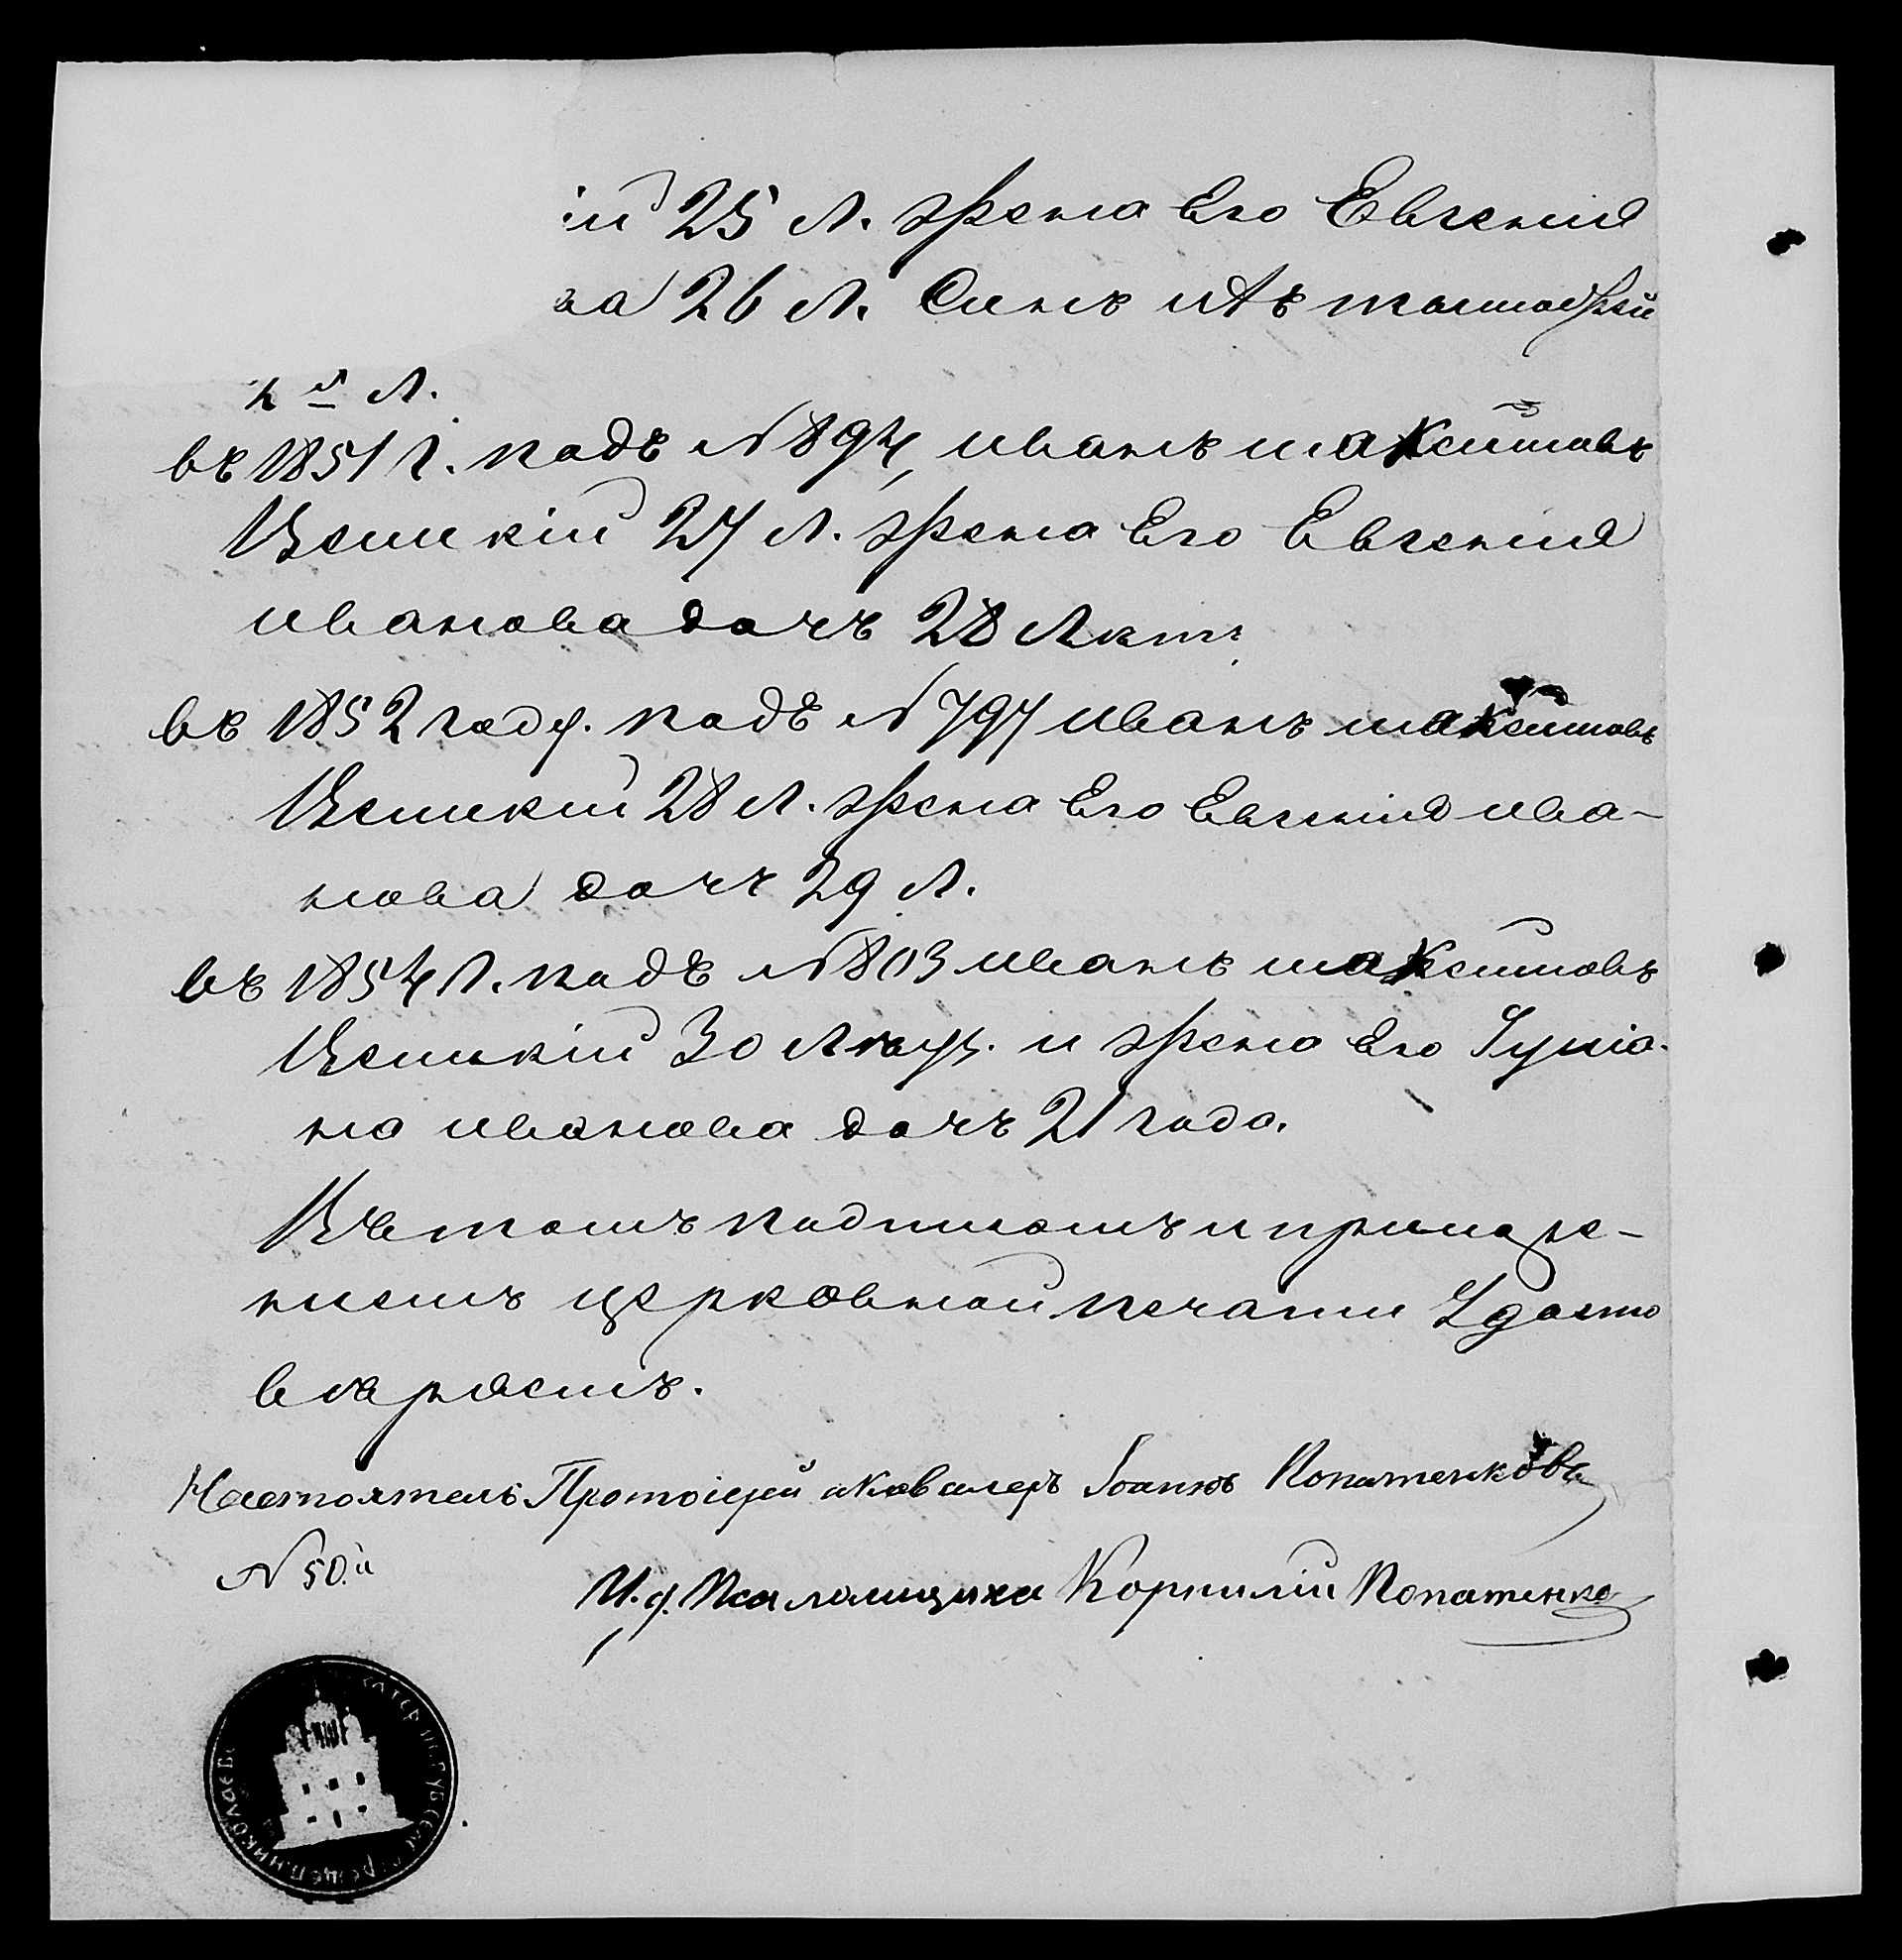 ій 25 л. жена Его Евгенія
ва 26 л. Сынъ ихъ тимофей
2й Л.
въ 1851 г. подъ № 894, иванъ максимовъ
Великій 27 л. жена Его Евгенія
иванова дочь 28 Лѣтъ
въ 1852 году. подъ № 797 иванъ максимовъ
Великій 28 л. жена Его Евгенія ива-
нова дочь 29 л.
въ 1854 г. подъ № 803 иванъ максимовъ
Великій 30 Лѣтъ. и жена Его Іуліа-
на иванова дочь 21 года.
Въ томъ подписомъ и приложе-
ніемъ церковной печати Удосто
вѣряемъ.
Настоятель Протоіерей и Кавалеръ Іоаннъ Копатенковъ
№ 50.й
И. д. Псаломщика Корнилій Копатенко